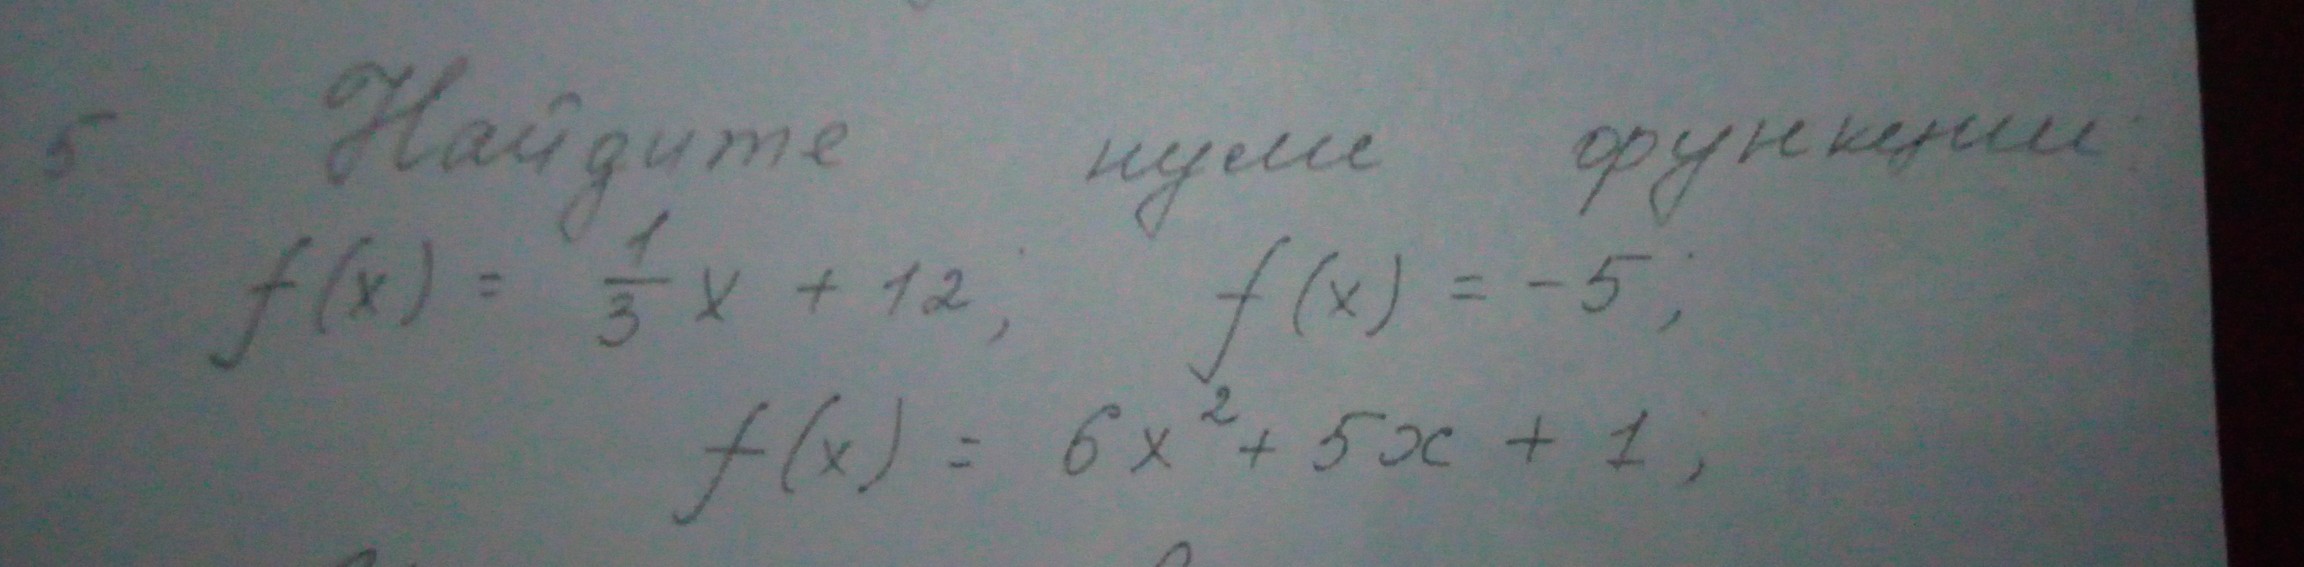 5 Найдите нули функции:
f(x) = 1/3 x + 12; f(x) = -5;
f(x) = 6x² + 5x + 1;